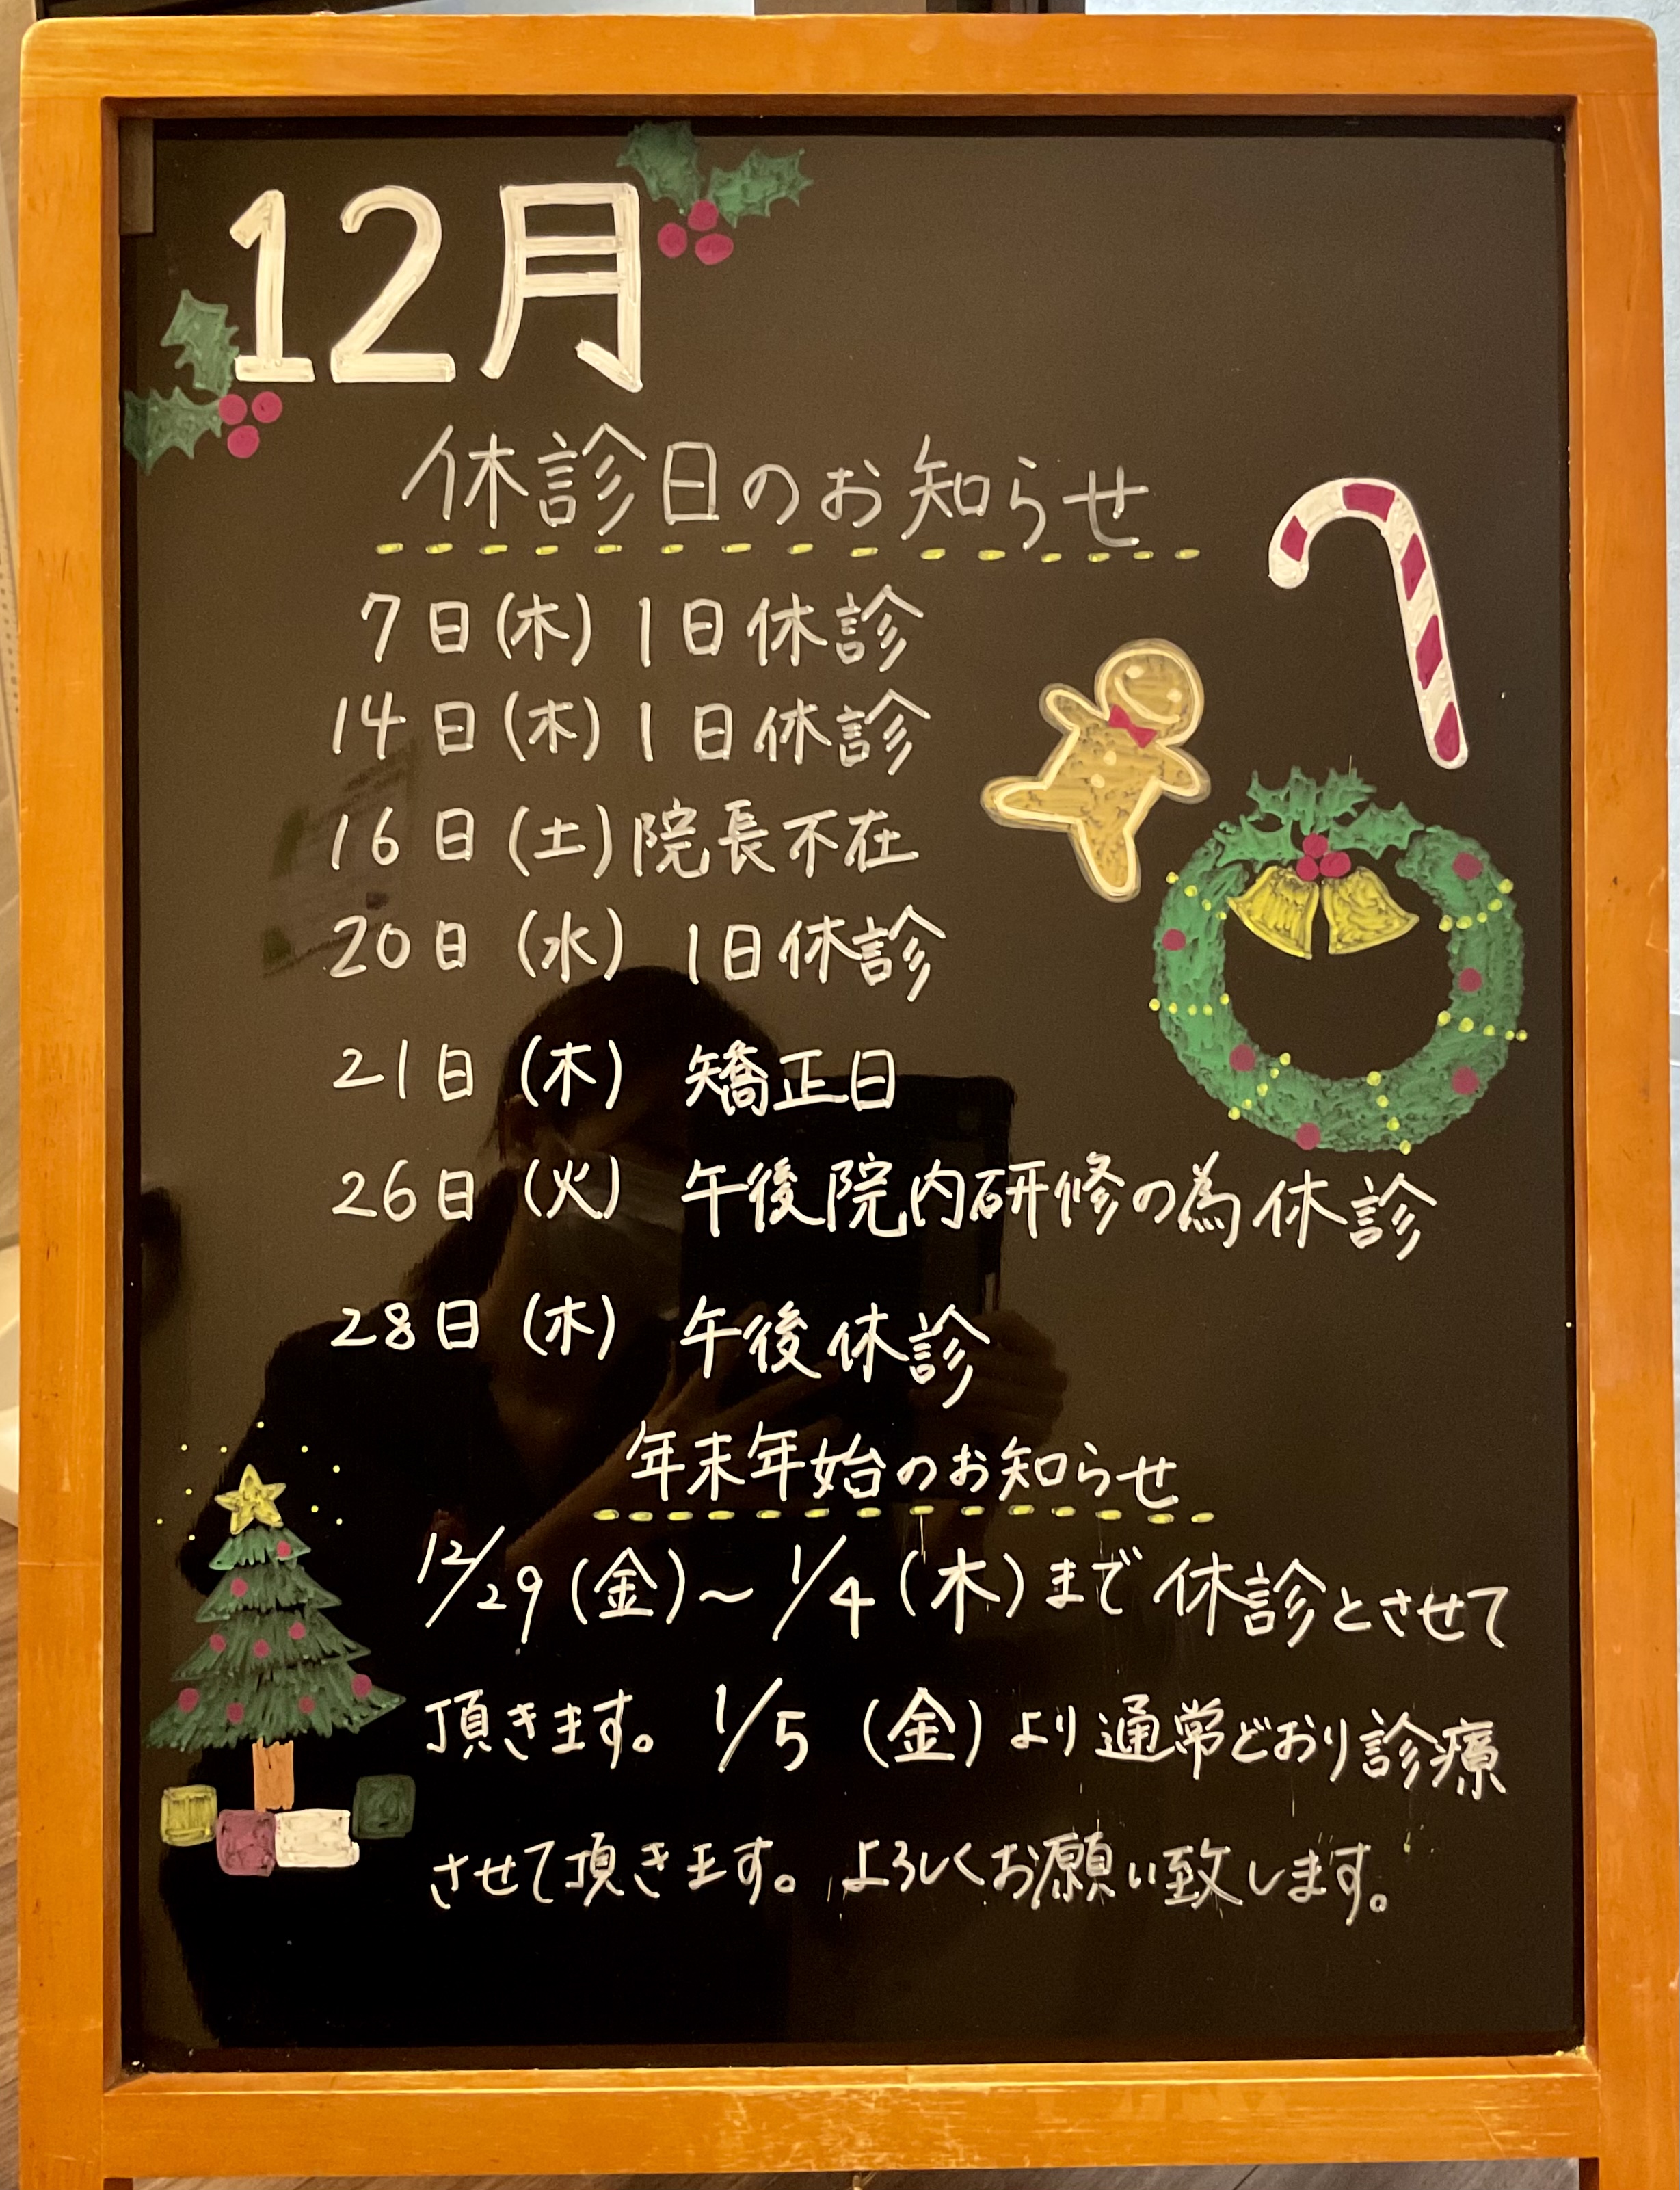 12月
休診日のお知らせ
7日(木) 1日休診
14日(木) 1日休診
16日(土) 院長不在
20日(水) 1日休診
21日(木) 矯正日
26日(火) 午後院内研修の為休診
28日(木) 午後休診
年末年始のお知らせ
12/29(金)～1/4(木)まで休診とさせて
頂きます。1/5(金)より通常どおり診療
させて頂きます。よろしくお願い致します。